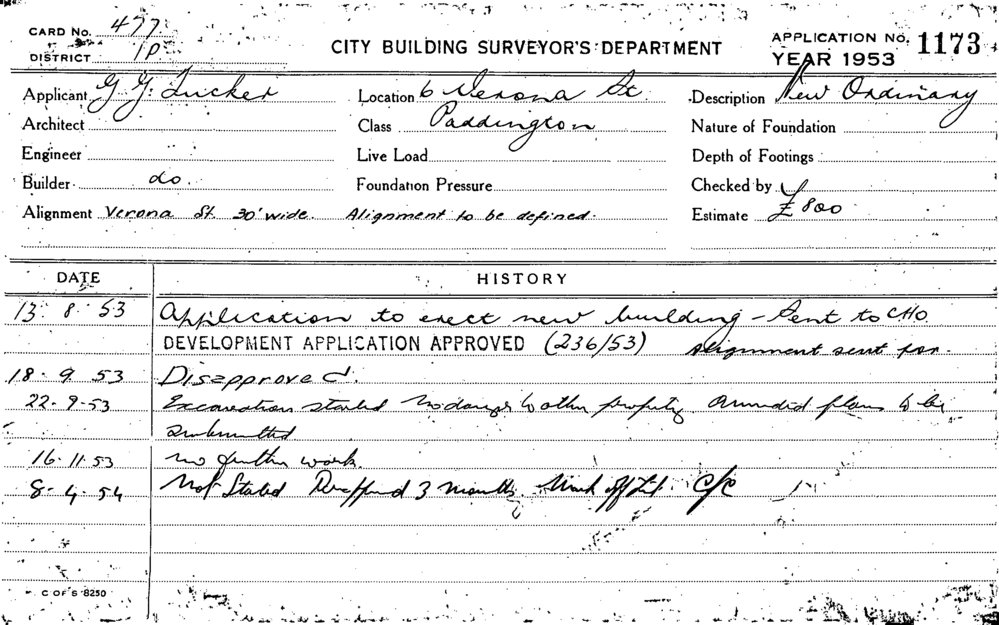 CARD No. 477
DISTRICT 1P
CITY BUILDING SURVEYOR'S DEPARTMENT
APPLICATION No. 1173
YEAR 1953
Applicant G. G. Tucker
Location 6 Verona St.
Description New Ordinary
Architect
Class Paddington
Nature of Foundation
Engineer
Live Load
Depth of Footings
Builder do.
Foundation Pressure
Checked by
Alignment Verona St. 30' wide. Alignment to be defined.
Estimate £800
DATE HISTORY
13. 8. 53 Application to erect new building - Sent to CHO.
DEVELOPMENT APPLICATION APPROVED (236/53) Alignment sent for.
18. 9. 53 Disapproved.
22-9-53 Excavation started No danger to other property. Amended plans to be
submitted
16.11.53 No further work.
8-4-54 Not Started 3 months. Mark off List. C/C
C OF S 8250